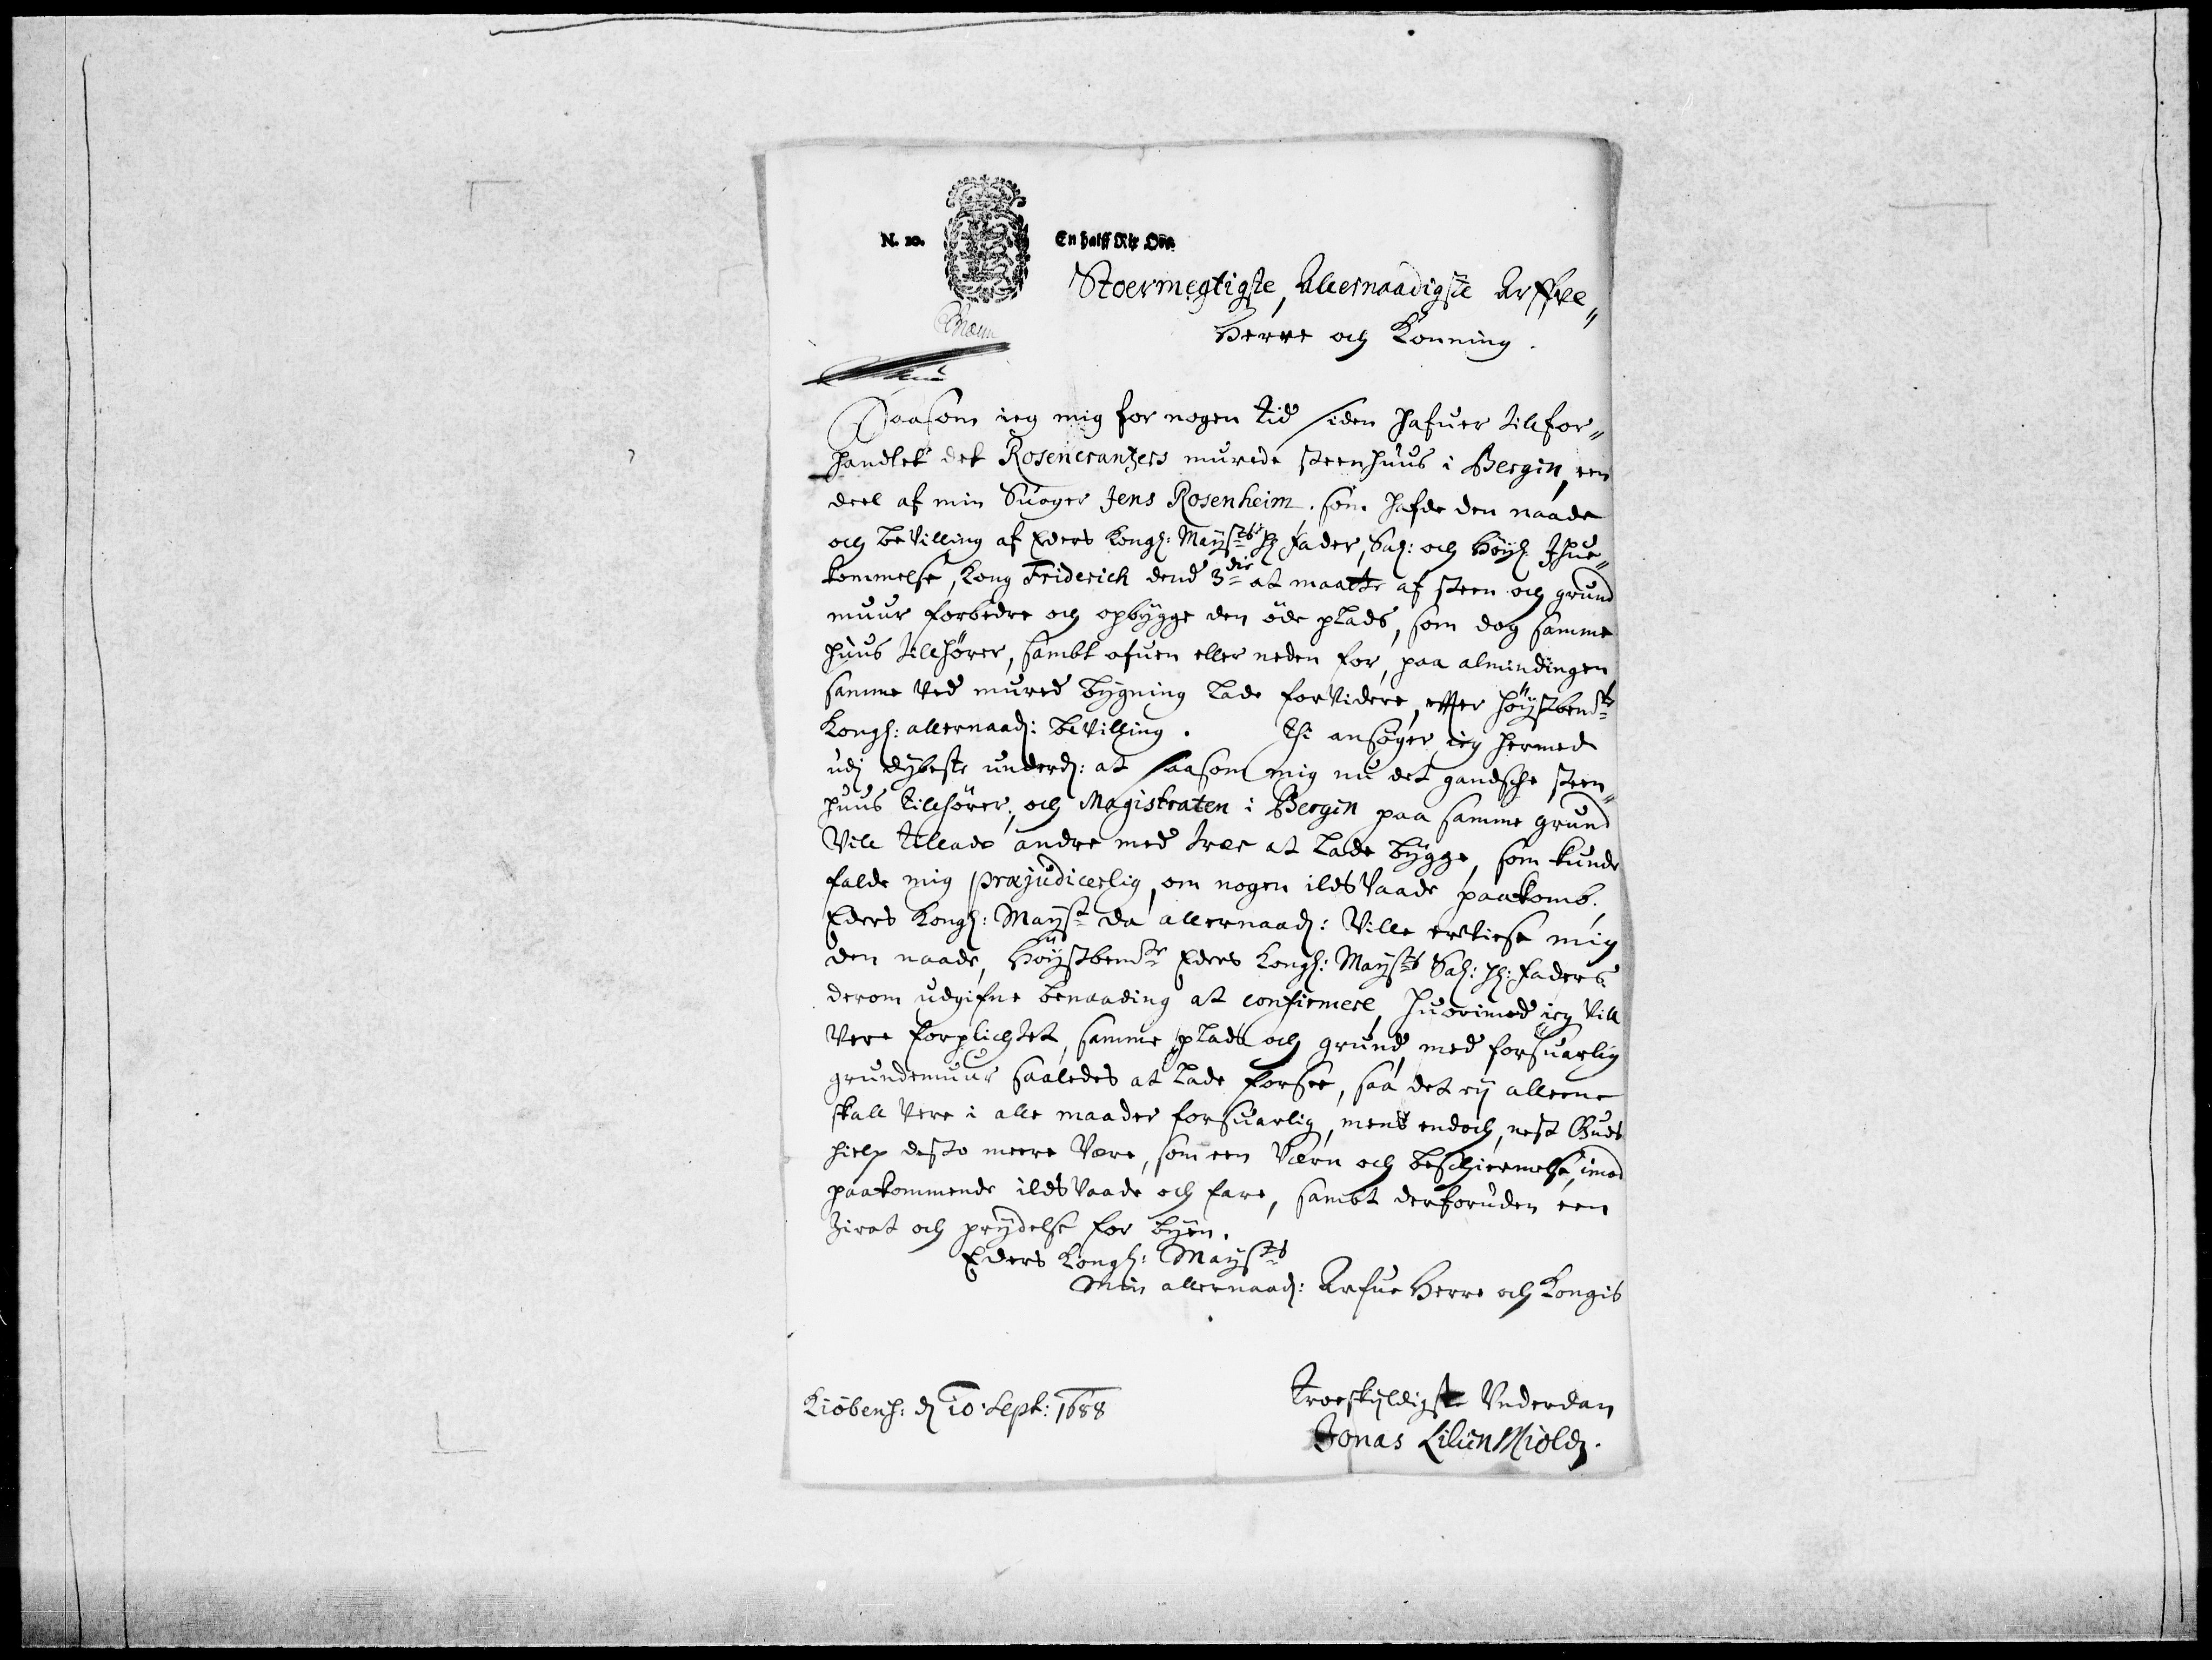 N. 20.
En halff Rix Ort.
Stoermegtigste, Allernaadigste Arffve„
Herre och Konning.
Saasom ieg mig for nogen tid siden hafuer tillfor„
handlet det Rosencrantzers murede steenhuus i Bergin, een
deel af min Suoger Jens Rosenheim. som hafde den naade
och beVilling af Eders Kongl: Mayts H Fader, Sal: och Høyl: Ihue„
kommelse, Kong Friderich dend 3die at maatte af steen och grund
muur forbedre och opbygge den øde plads, som dog samme
huus tillhører, sambt ofuen eller neden for, paa almindingen
samme Ved mured bygning lade forVidere, effter høystbemte
Kongl: allernaad: beVilling. Thi ansøger ieg hermed
udj dybeste underd: at saasom mig nu det gandsche steen„
huus tillhører, och Magistraten i Bergin paa samme grund
Vill tillade andre med træe at lade bygge, som kunde
falde mig præjudicerlig, om nogen ildsVaade paakomb.
Eders Kongl: Mayt da allernaad: Ville erViese mig
den naade, Høystbemte Eders Kongl: Mayts Sal: H: Faders
derom udgifne benaading at confirmere, huorimod ieg Vill
Vere forplichtet, samme plads och grund, med forsuarlig
grundemuur saaledes at lade forsee, saa det ej alleene
skall Vere i alle maader forsuarlig, mens endoch, nest Guds
hielp desto meere Være, som een Værn och beschiermelse, imod
paakommende ildsVaade och fare, sambt derforuden een
Zirat och prydelse for byen.
Eders Kongl: Mayts
Min allernaad: Arfue Herre och Kongis
Kiøbenh: d 10: Sept: 1688
troeskyldigste Underdan
Jonas Lilienskiold.